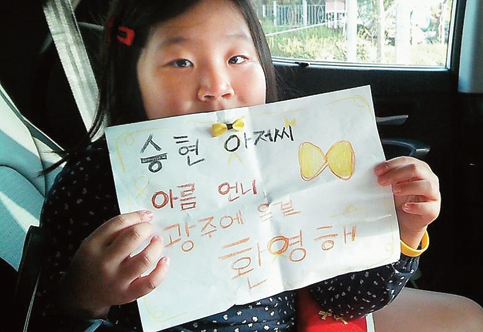 승현 아저씨
아름 언니
광주에 온걸
환영해